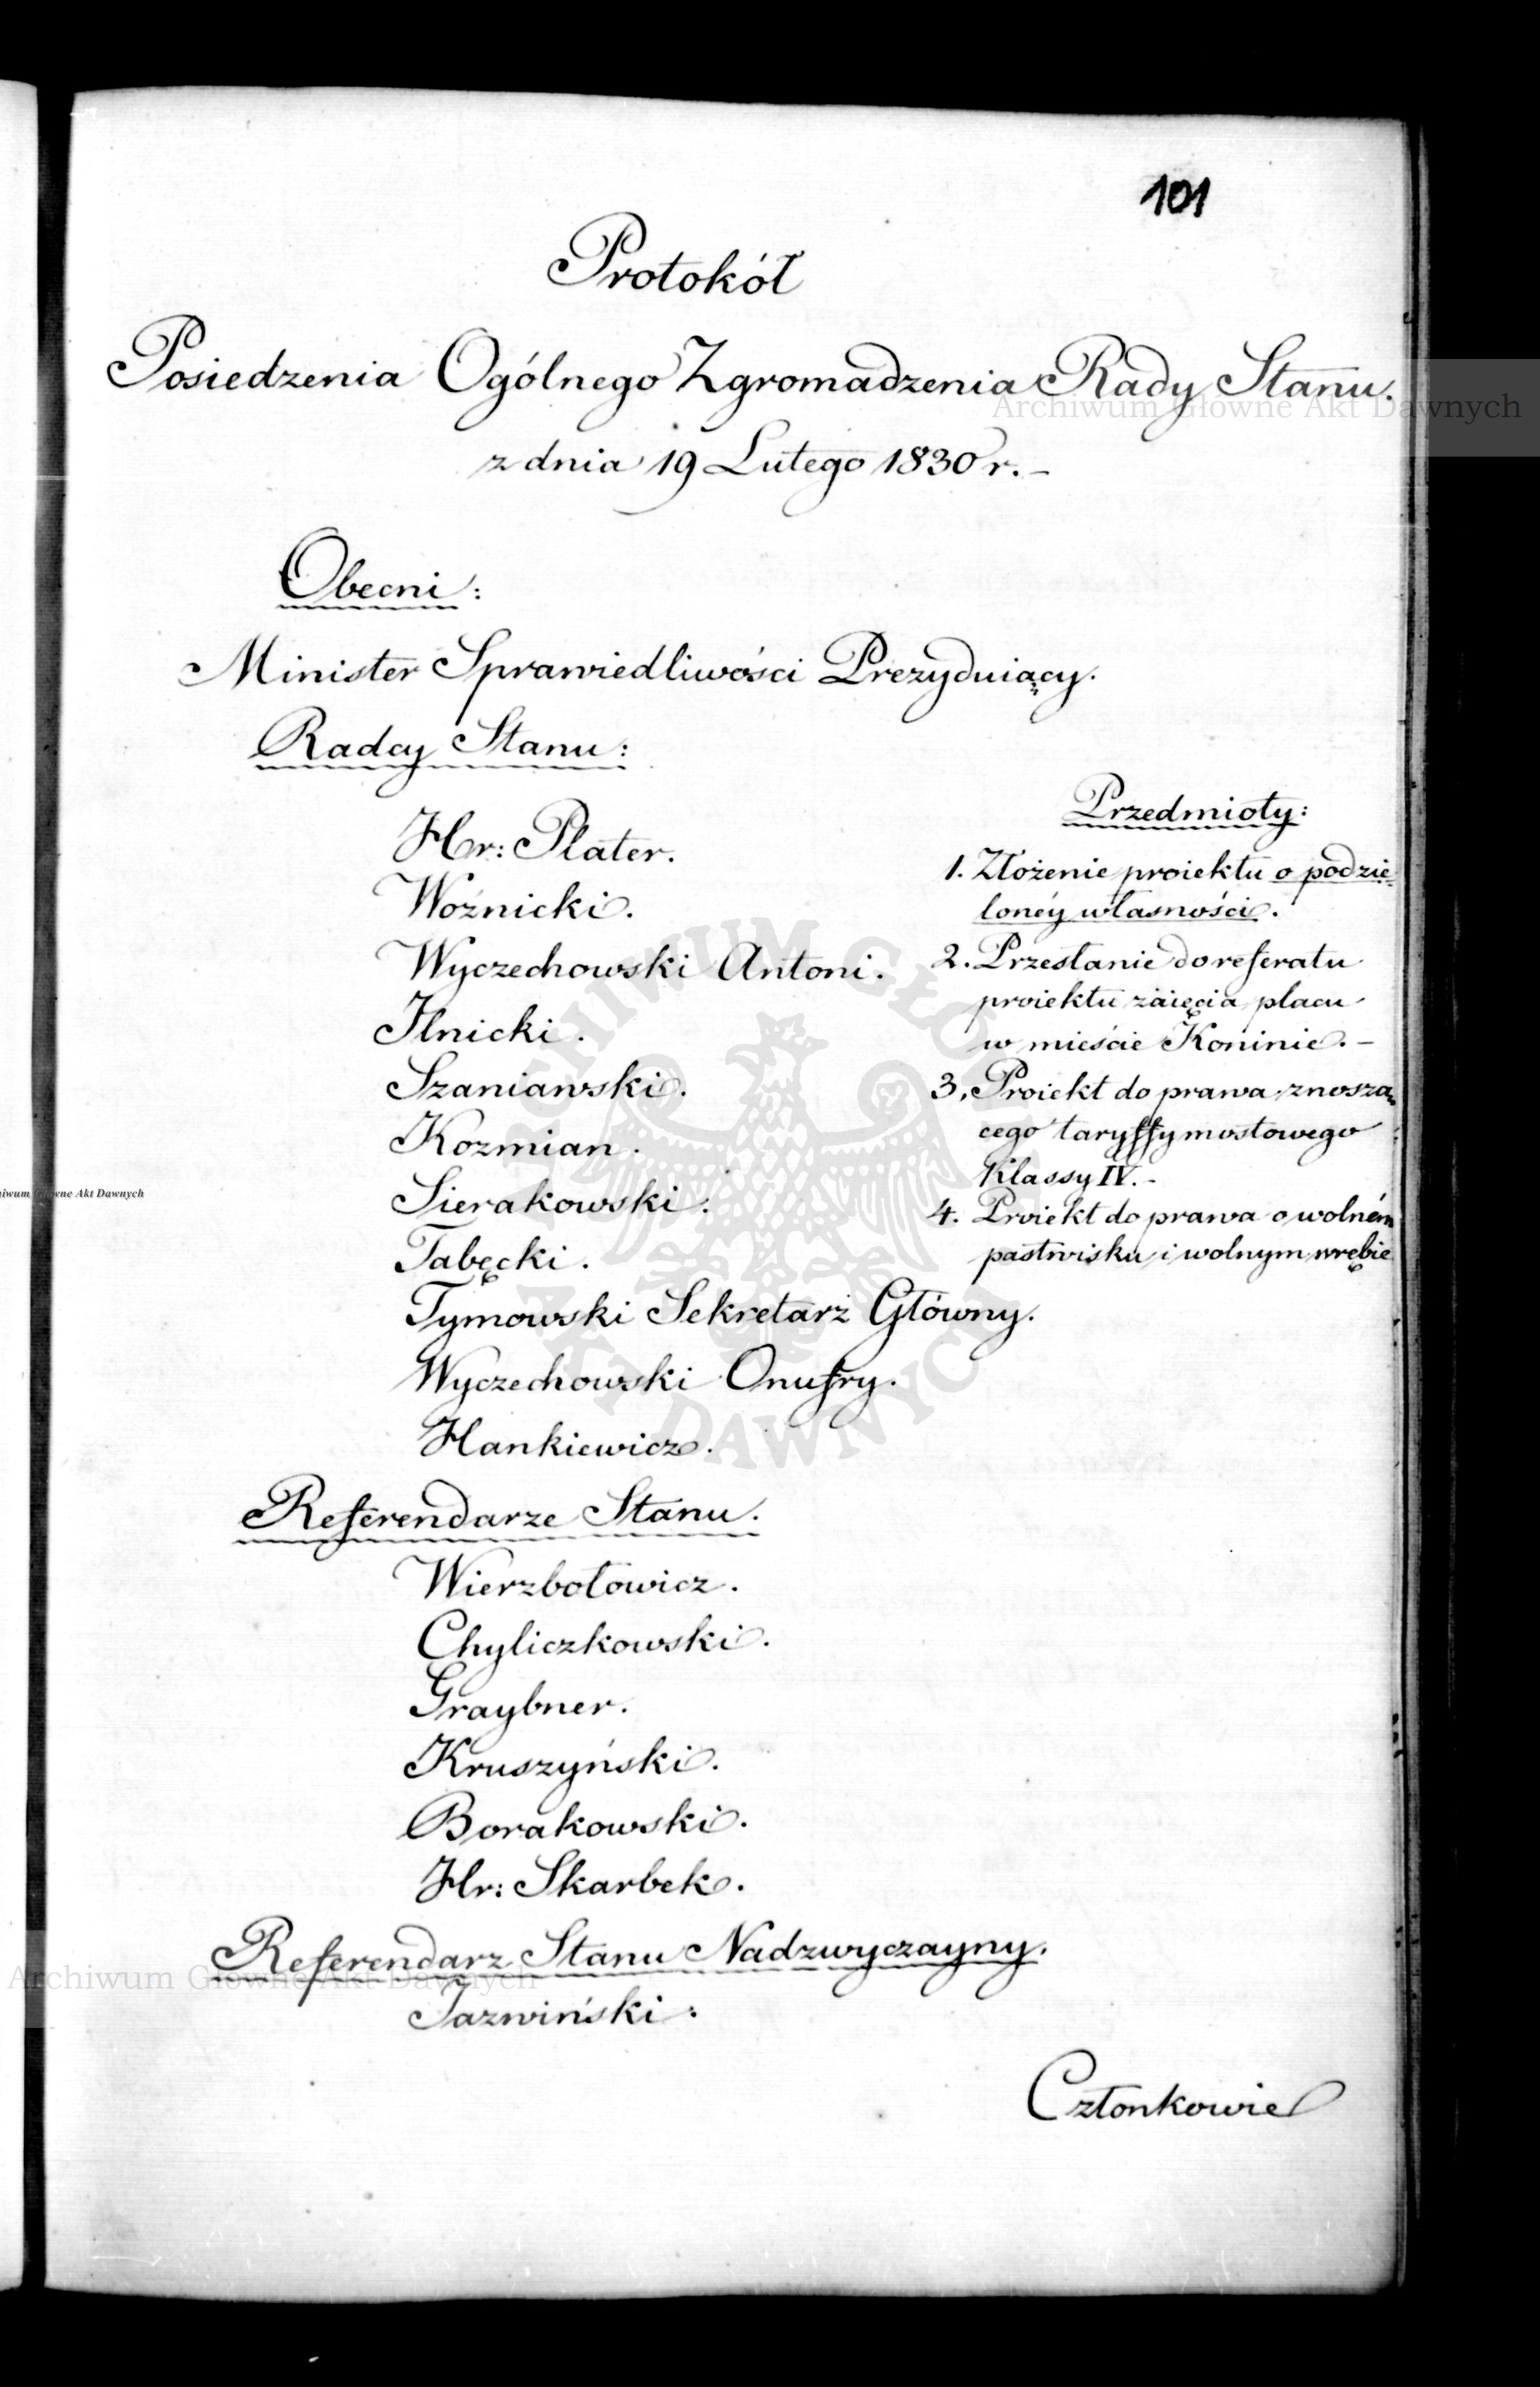 101
Protokół
Posiedzenia Ogólnego Zgromadzenia Rady Stanu.
z dnia 19 Lutego 1830 r. –
Obecni:
Minister Sprawiedliwości Prezyduiący.
Radcy Stanu:
Hr: Plater.
Woźnicki.
Wyczechowski Antoni.
Ilnicki.
Szaniawski.
Kozmian.
Sierakowski.
Tabęcki.
Tymowski Sekretarz Główny.
Wyczechowski Onufry.
Hankiewicz.
Referendarze Stanu.
Wierzbołowicz.
Chyliczkowski.
Graybner.
Kruszyński.
Borakowski.
Hr: Skarbek.
Referendarz Stanu Nadzwyczayny.
Jazwiński:
Przedmioty:
1. Złożenie proiektu o podzie=
lonéy własności.
2. Przesłanie do referatu
proiektu zaięcia placu
w mieście Koninie. –
3. Proiekt do prawa znoszą=
cego taryffy mostowego
Klassy IV. –
4. Proiekt do prawa o wolném
pastwisku i wolnym wrębie
Członkowie
Archiwum Główne Akt Dawnych
Archiwum Główne Akt Dawnych
iwum Główne Akt Dawnych
ARCHIWUM GŁÓWNE
AKT DAWNYCH